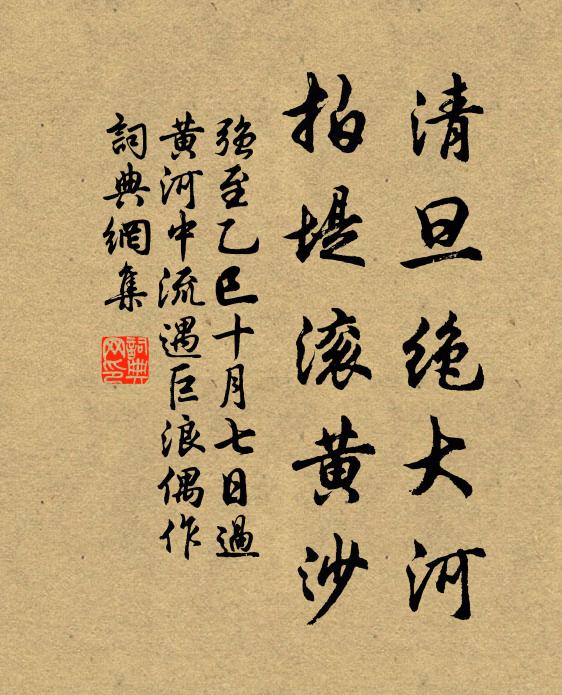 清旦绝大河
拍堤滚黄沙
強至乙巳十月七日過
黄河中流遇巨浪偶作
詞典網集
詞典
网印